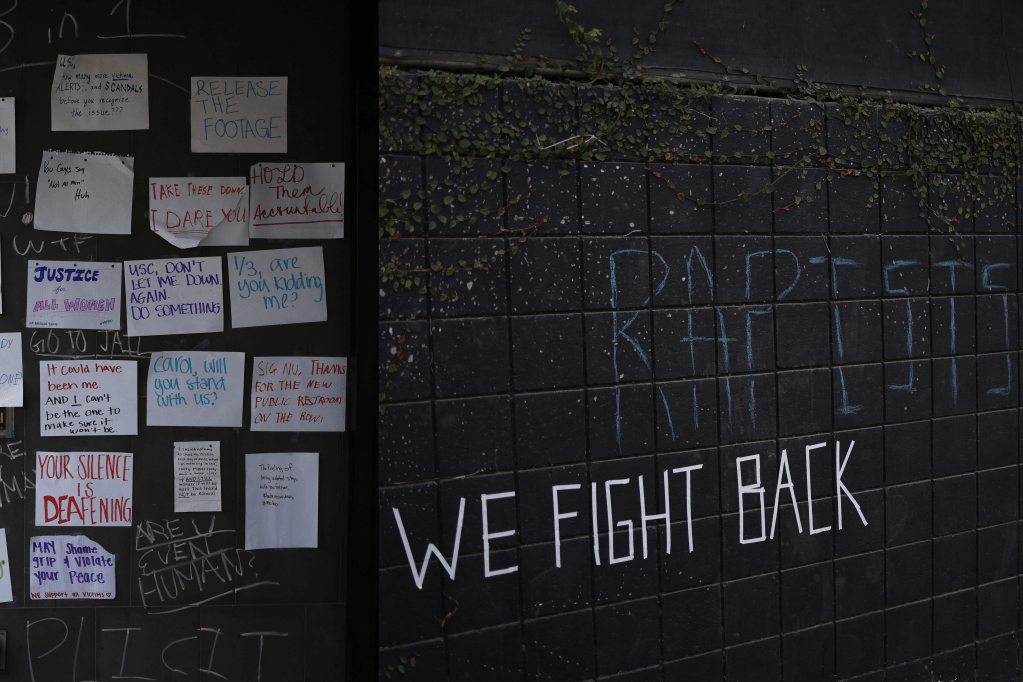 in 1
USC,
How many more victims
ALERTS... and SCANDALS
before you recognize
the issue???
RELEASE
THE
FOOTAGE
You Guys Say
"Not All Men"
Huh
TAKE THESE DOWN
I DARE YOU
HOLD
Them
Accountable!
WTF
JUSTICE
for
ALL WOMEN
USC, DON'T
LET ME DOWN
AGAIN.
DO SOMETHING
1/3, are
you kidding
me?
GO TO JAIL
It could have
been me.
AND I can't
be the one to
make sure it
won't be.
Carol, will
you stand
with us?
SIG NU, THANKS
FOR THE NEW
PUBLIC RESTROOM
ON THE ROW!
YOUR SILENCE
IS
DEAFENING
MAY Shame
grip & Violate
your Peace
We support all victims
ARE U
EVEN
HUMAN?
PLICIT
RAPISTS
WE FIGHT BACK